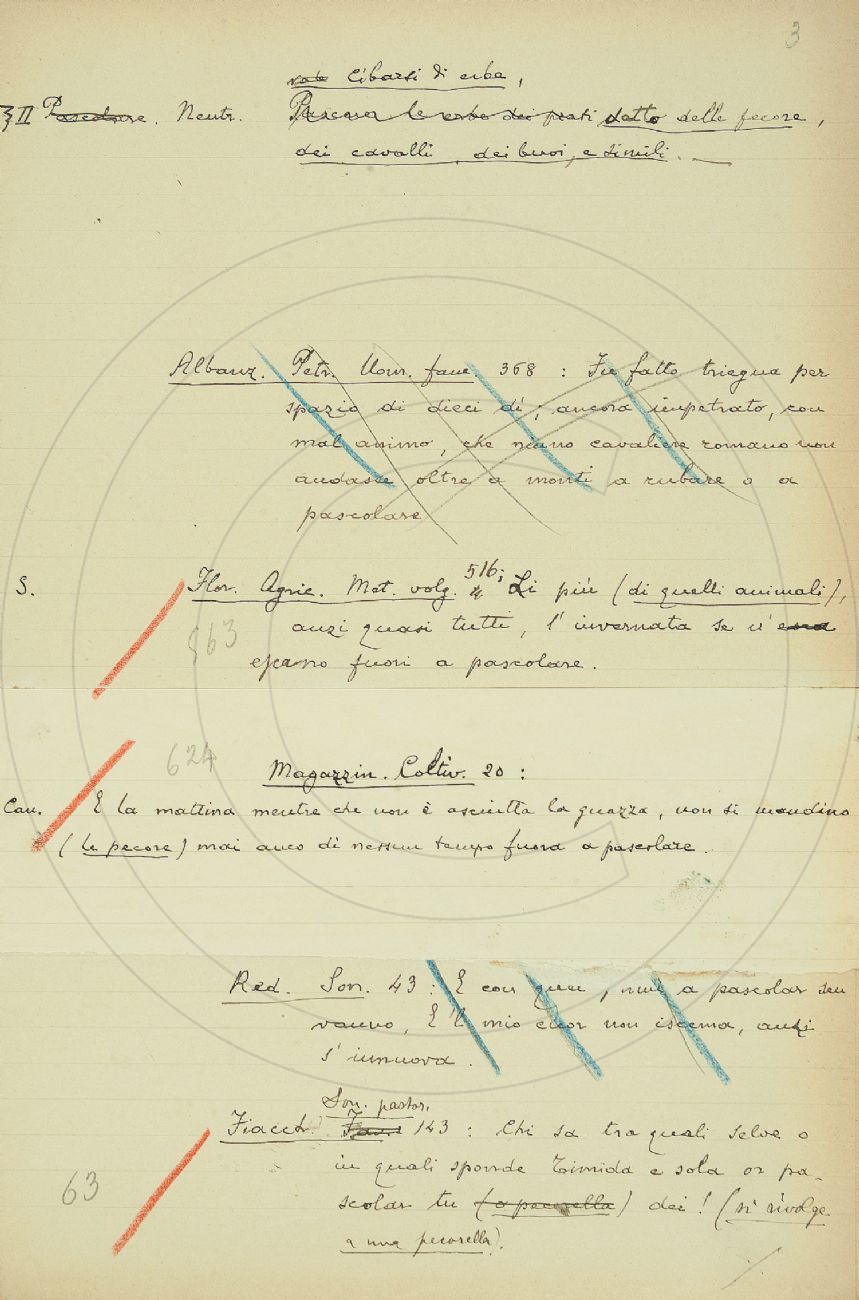 3
Cibarsi di erbe,
§ II Pascolare. Neutr. Pascer le erbe dei prati detto delle pecore,
dei cavalli, dei buoi, e simili. —
Albanz. Petr. Uom. fam. 368 : Fu fatto triegua per
spazio di dieci dì; ancora impetrato, con
mal animo, che niuno cavaliere romano non
andasse oltre a monti a rubare o a
pascolare
S. Flor. Agric. Met. volg. 516; Li più (di quelli animali),
anzi quasi tutti, l'invernata se n'
563
erano fuori a pascolare.
624
Magazzin. Coltiv. 20 :
Can. E la mattina mentre che non è asciutta la guazza, non si mandino
(le pecore) mai anco di nessun tempo fuora a pascolare.
Red. Son. 43 : E con quei, miei a pascolar sen
vanno, E 'l mio cuor non iscema, anzi
s'innuova.
Son. pastor.
Fiacch. Fav. 143 : Chi sa tra quali selve o
in quali sponde Timida e sola or pa-
63
scolar tu (o pecorella) dei! (si rivolge
a una pecorella).